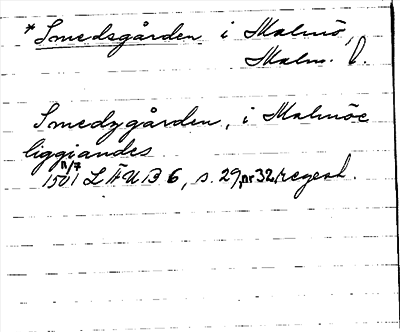 * Smedsgården i Malmö,
Malm. fl.
Smedzgården, i Malmöe
liggiandes
11/7
1501 LÄUB 6, s. 29, nr 32, regest.